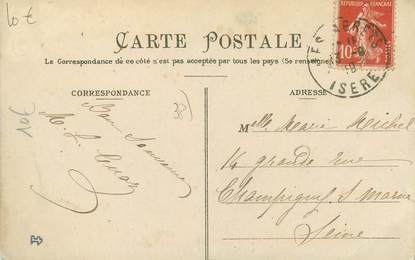 10€
RÉPUBLIQUE FRANÇAISE
10
ISERE
CARTE POSTALE
La Correspondance de ce côté n'est pas acceptée par tous les pays (Se renseigner
CORRESPONDANCE
ADRESSE
10€
Bon Souvenir
Melle Marie Michel
14 grande rue
Champigny S Marne
Seine